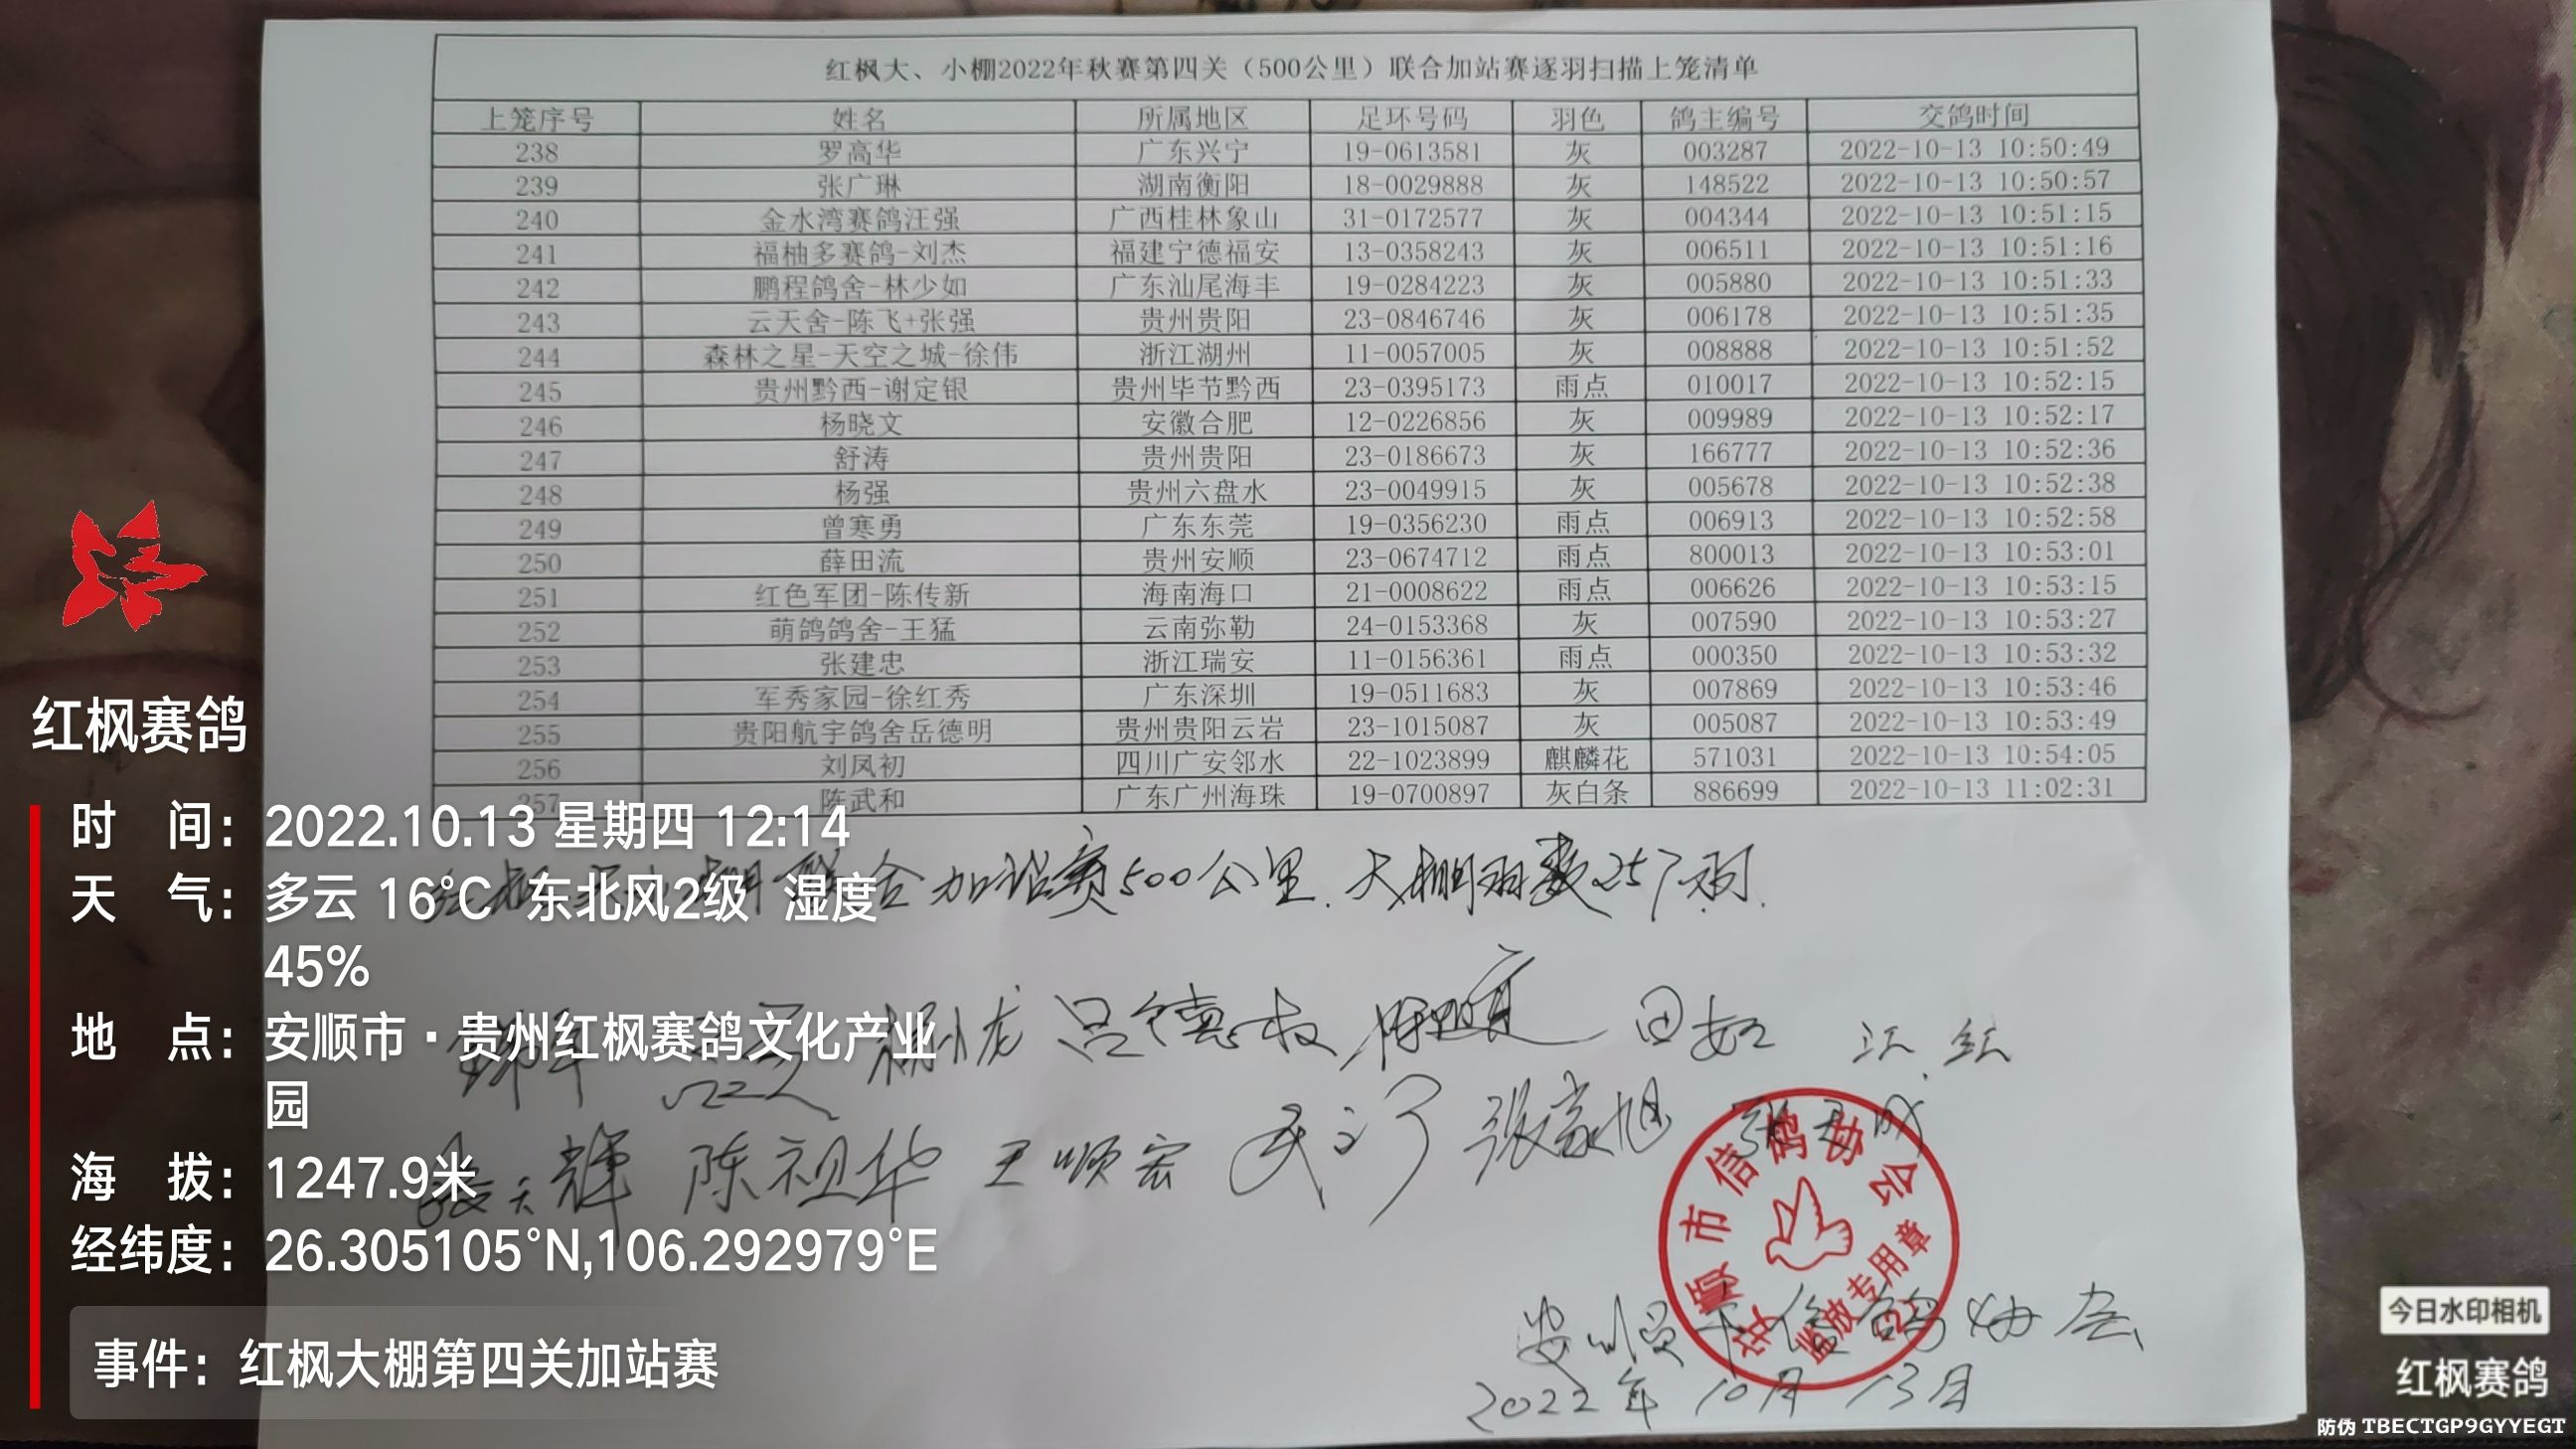 红枫大、小棚2022年秋赛第四关（500公里）联合加站赛逐羽扫描上笼清单
上笼序号 姓名 所属地区 足环号码 羽色 鸽主编号 交鸽时间
238 罗高华 广东兴宁 19-0613581 灰 003287 2022-10-13 10:50:49
239 张广琳 湖南衡阳 18-0029888 灰 148522 2022-10-13 10:50:57
240 金水湾赛鸽汪强 广西桂林象山 31-0172577 灰 004344 2022-10-13 10:51:15
241 福柚多赛鸽-刘杰 福建宁德福安 13-0358243 灰 006511 2022-10-13 10:51:16
242 鹏程鸽舍-林少如 广东汕尾海丰 19-0284223 灰 005880 2022-10-13 10:51:33
243 云天舍-陈飞+张强 贵州贵阳 23-0846746 灰 006178 2022-10-13 10:51:35
244 森林之星-天空之城-徐伟 浙江湖州 11-0057005 灰 008888 2022-10-13 10:51:52
245 贵州黔西-谢定银 贵州毕节黔西 23-0395173 雨点 010017 2022-10-13 10:52:15
246 杨晓文 安徽合肥 12-0226856 灰 009989 2022-10-13 10:52:17
247 舒涛 贵州贵阳 23-0186673 灰 166777 2022-10-13 10:52:36
248 杨强 贵州六盘水 23-0049915 灰 005678 2022-10-13 10:52:38
249 曾寒勇 广东东莞 19-0356230 雨点 006913 2022-10-13 10:52:58
250 薛田流 贵州安顺 23-0674712 雨点 800013 2022-10-13 10:53:01
251 红色军团-陈传新 海南海口 21-0008622 雨点 006626 2022-10-13 10:53:15
252 萌鸽鸽舍-王猛 云南弥勒 24-0153368 灰 007590 2022-10-13 10:53:27
253 张建忠 浙江瑞安 11-0156361 雨点 000350 2022-10-13 10:53:32
254 军秀家园-徐红秀 广东深圳 19-0511683 灰 007869 2022-10-13 10:53:46
255 贵阳航宇鸽舍岳德明 贵州贵阳云岩 23-1015087 灰 005087 2022-10-13 10:53:49
256 刘凤初 四川广安邻水 22-1023899 麒麟花 571031 2022-10-13 10:54:05
257 陈武和 广东广州海珠 19-0700897 灰白条 886699 2022-10-13 11:02:31
联合加站赛500公里.大棚羽数257羽.
杨小龙 吕德权 田如 江红
陈祖华 王顺宏 张家旭
安顺市信鸽协会
监放专用章
(2)
安顺市信鸽协会
2022年10月13日
红枫赛鸽
时间：2022.10.13 星期四 12:14
天气：多云 16℃ 东北风2级 湿度
45%
地点：安顺市·贵州红枫赛鸽文化产业
园
海拔：1247.9米
经纬度：26.305105°N,106.292979°E
事件：红枫大棚第四关加站赛
今日水印相机
红枫赛鸽
防伪 TBECTGP9GYYEGT